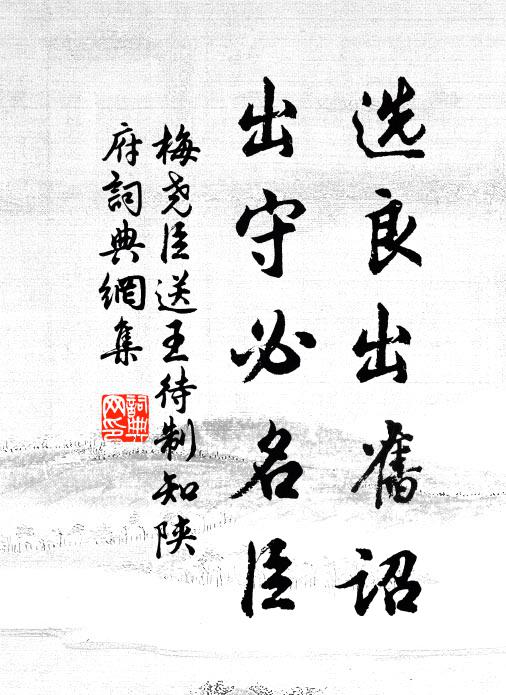 选良出旧诏
出守必名臣
梅尧臣送王待制知陕
府词典網集
詞典网印